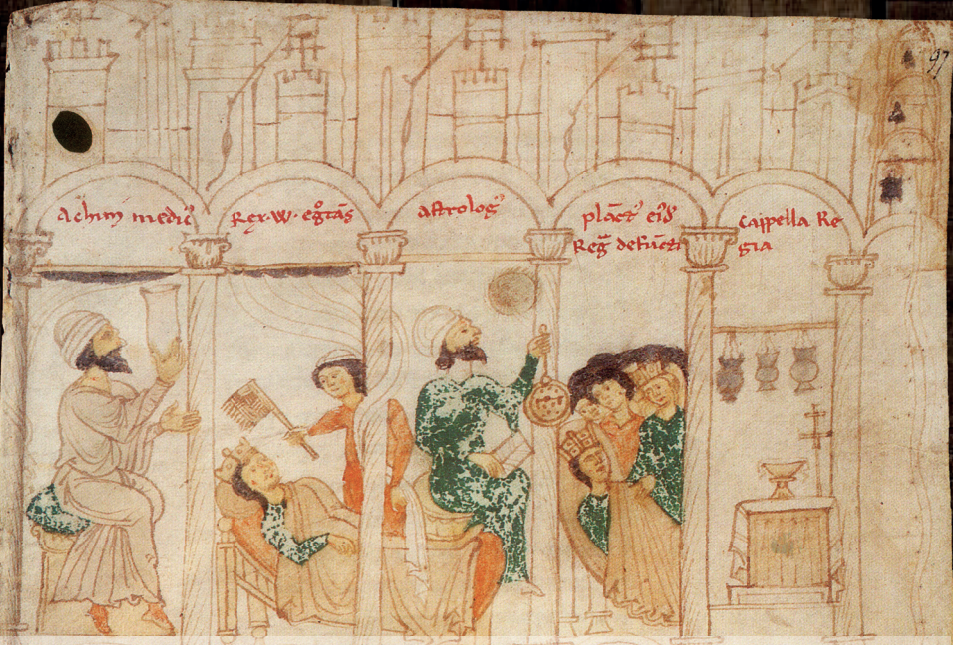 97
Achim medic⁹
Rex·W· eg̃tãs
Astrolog⁹
plãct⁹ ei⁹d̃
Reg̃ defũcti
Cappella Re
gia